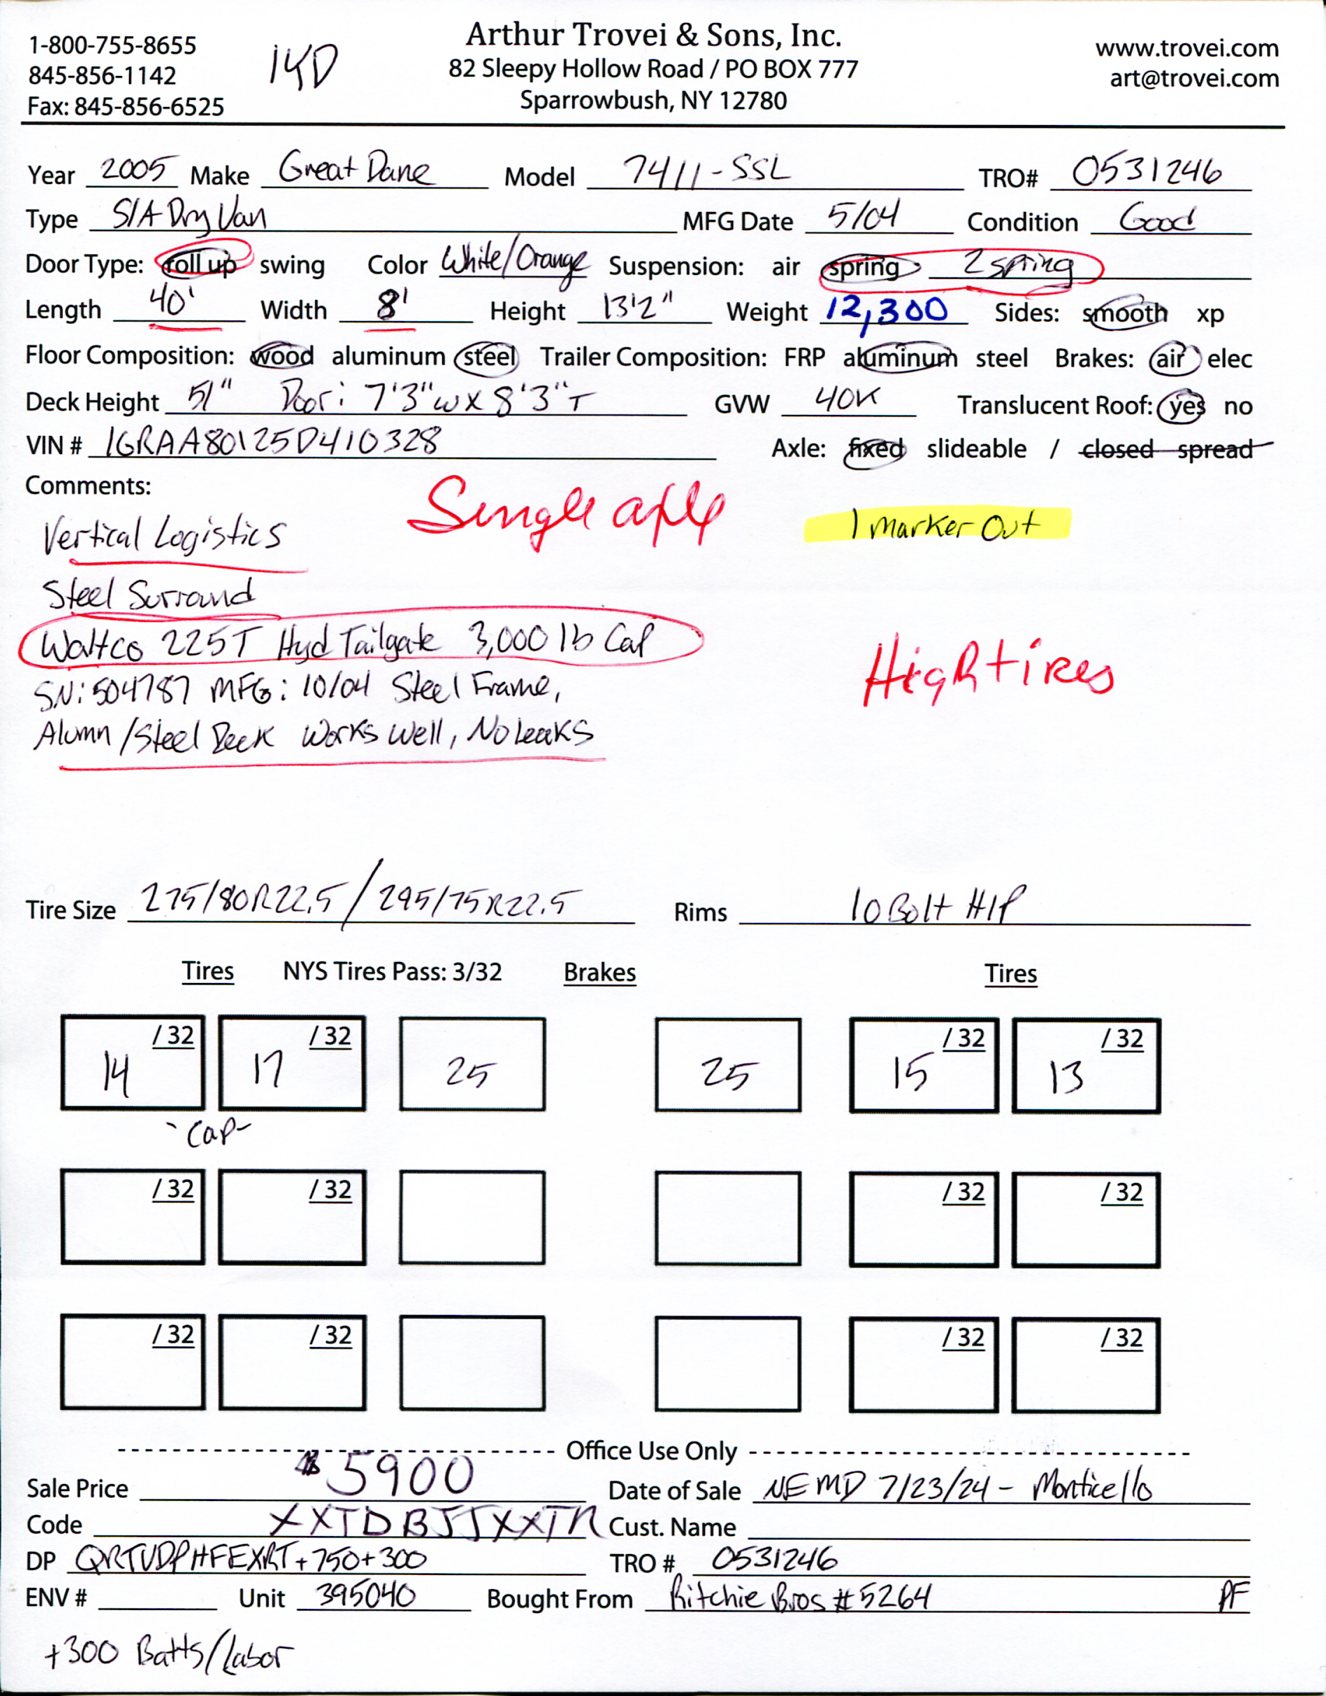 1-800-755-8655
845-856-1142
Fax: 845-856-6525
Arthur Trovei & Sons, Inc.
82 Sleepy Hollow Road / PO BOX 777
Sparrowbush, NY 12780
www.trovei.com
art@trovei.com
Year 2005 Make Great Dane Model 7411-SSL TRO# 0531246
Type S/A Dry Van MFG Date 5/04 Condition Good
Door Type: roll up swing Color White/Orange Suspension: air spring 2 spring
Length 40' Width 8' Height 13'2" Weight 12,300 Sides: smooth xp
Floor Composition: wood aluminum steel Trailer Composition: FRP aluminum steel Brakes: air elec
Deck Height 51" Door: 7'3"W X 8'3"T GVW 40K Translucent Roof: yes no
VIN # 1GRAA80125D410328 Axle: fixed slideable / closed spread
Comments:
Single axle
1 Marker Out
Vertical Logistics
Steel Surround
Waltco 225T Hyd Tailgate 3,000 lb Cap
High tires
SN: 504787 MFG: 10/04 Steel Frame,
Alumn/Steel Deck Works Well, No Leaks
Tire Size 275/80R22.5 / 295/75R22.5 Rims 10 Bolt H/P
Tires NYS Tires Pass: 3/32 Brakes Tires
14 /32 17 /32 25 25 15 /32 13 /32
-Cap-
/32 /32 /32 /32
/32 /32 /32 /32
Office Use Only
Sale Price $5900 Date of Sale NEMD 7/23/24 - Monticello
Code XXTDBJJXXTR Cust. Name
DP QRTVDPHFEXRT+750+300 TRO # 0531246
ENV # Unit 395040 Bought From Ritchie Bros #5264 PF
+300 Batts/Labor